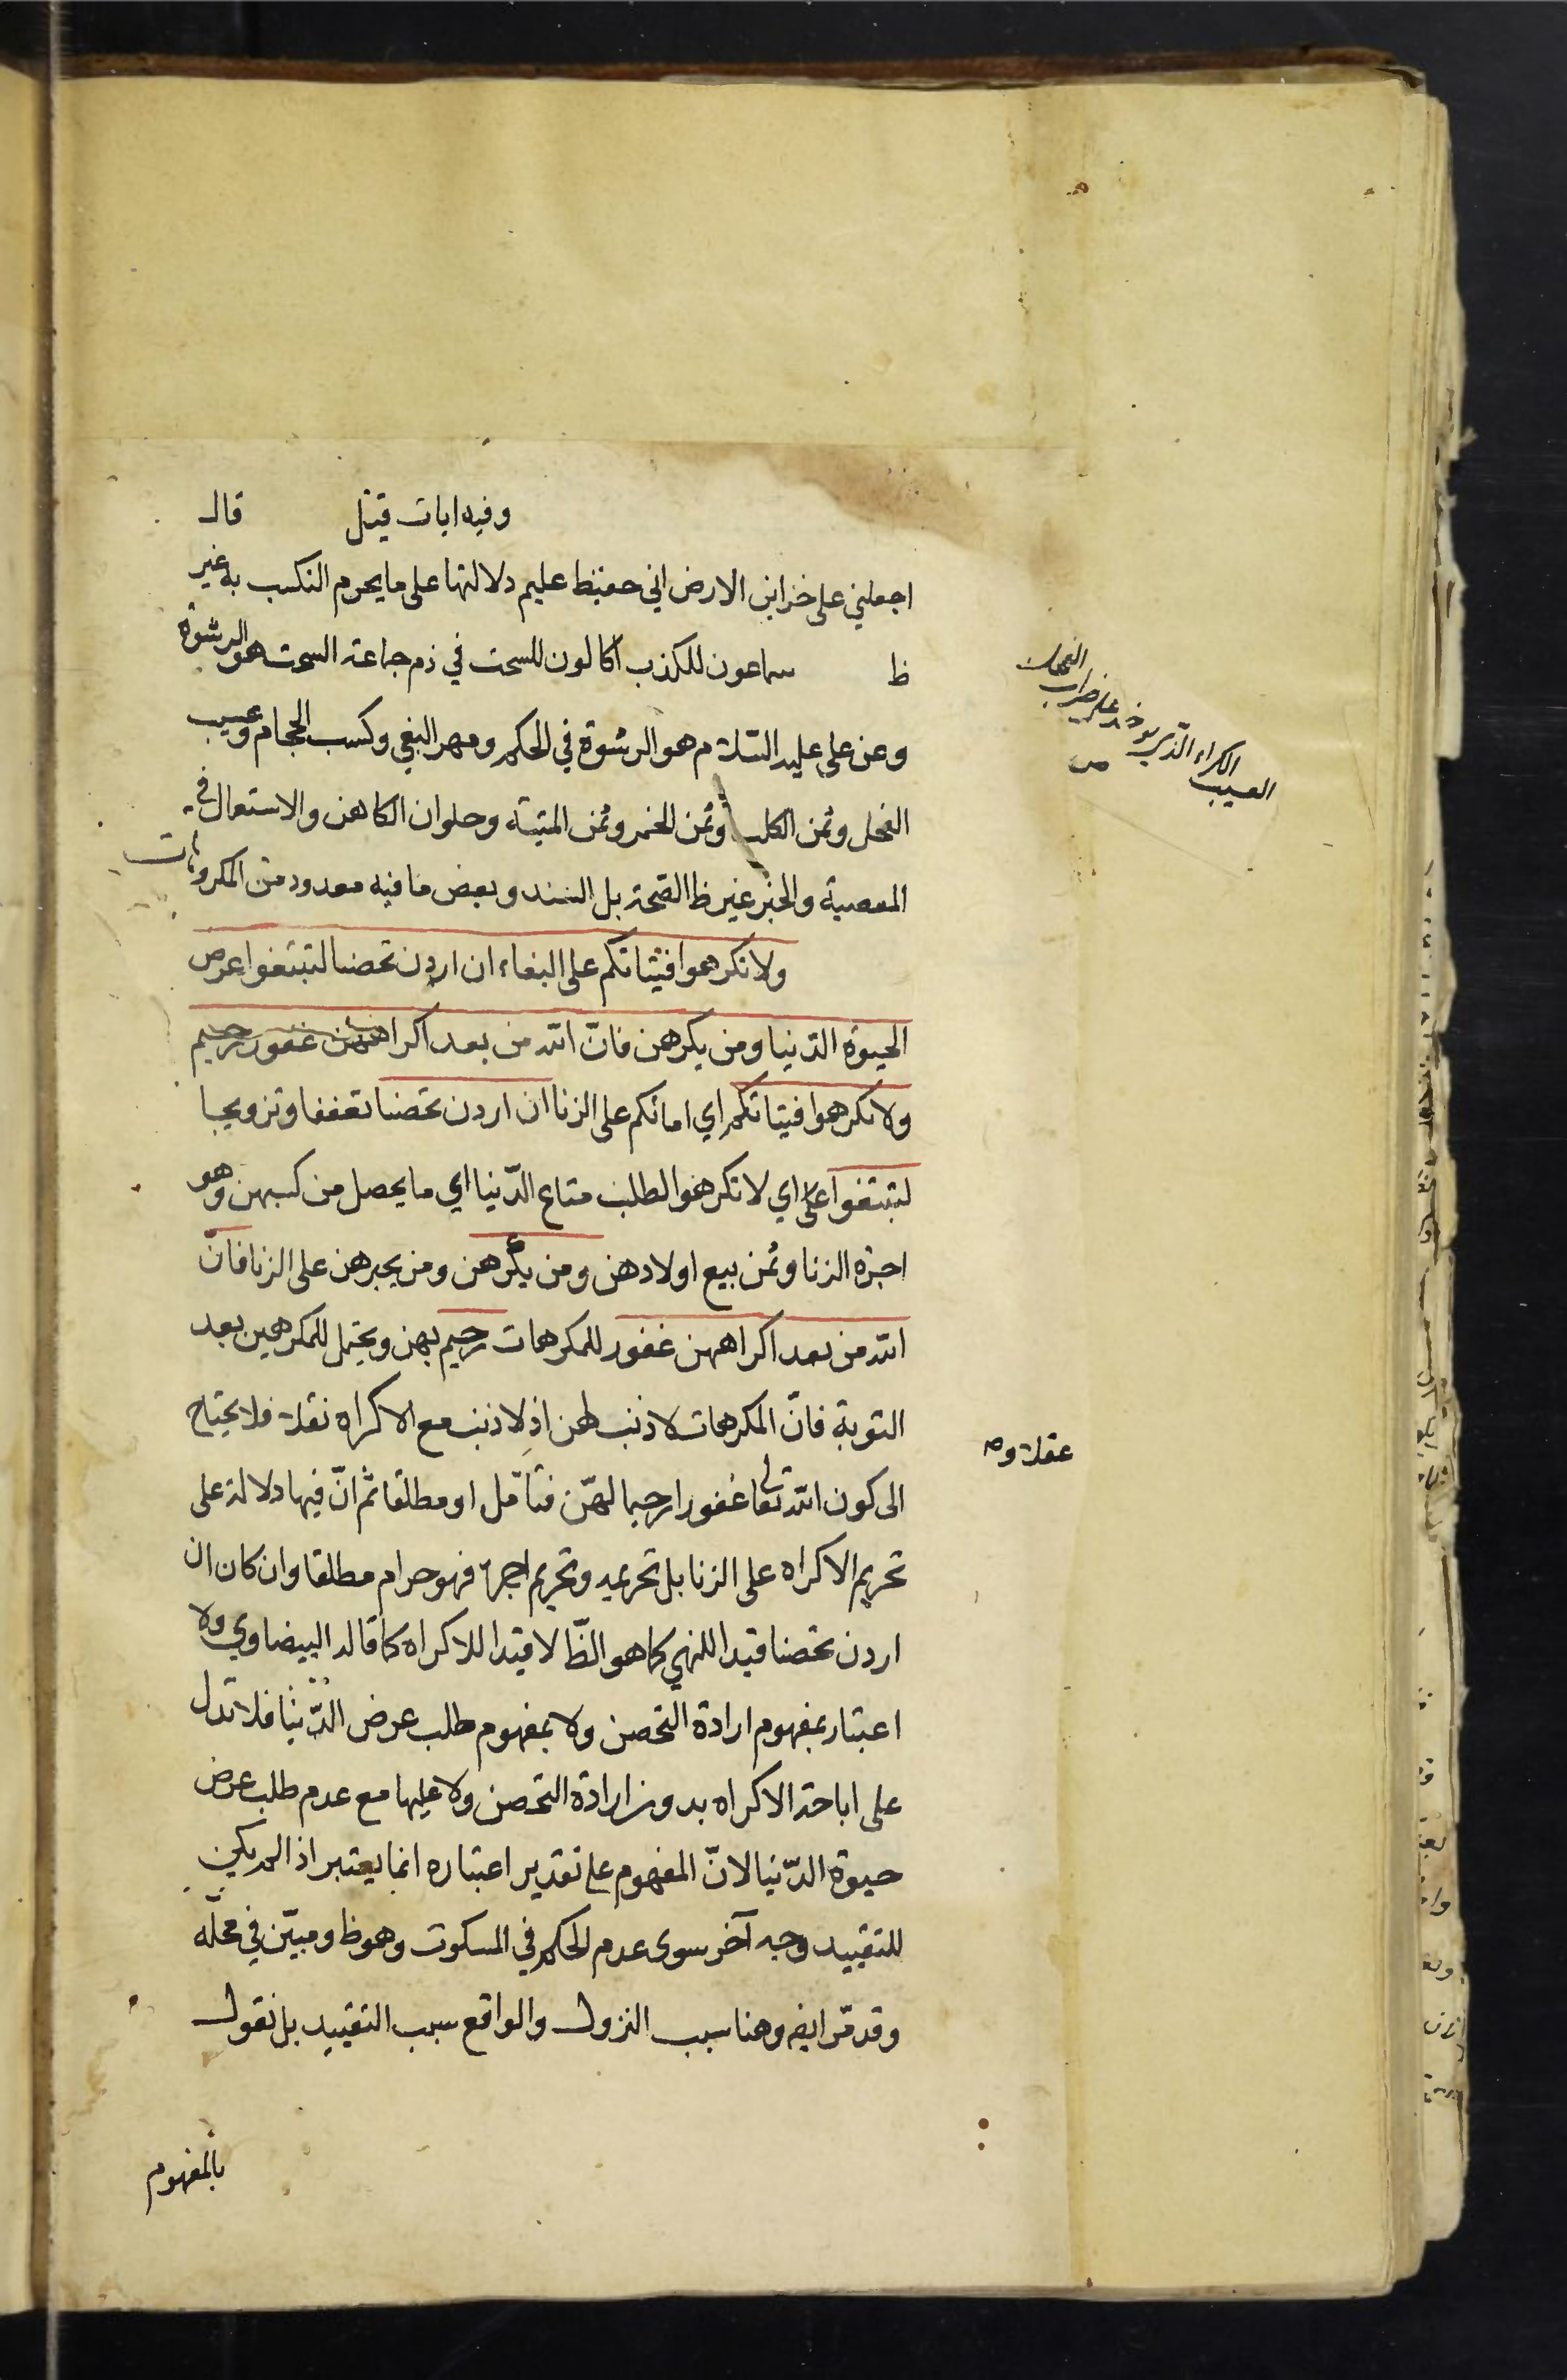 وفيه ايات قيل قال
اجعلني على خزاين الارض اني حفيظ عليم دلالتها على ما يحرم التكسب به غير
ظ سماعون للكذب اكالون للسحت في ذم جماعة السحت هو الرشوة
وعن علي عليه السلام هو الرشوة في الحكم ومهر البغي وكسب الحجام وعسيب
الفحل وثمن الكلب وثمن الخمر وثمن الميتة وحلوان الكاهن والاستعمال في
المعصية والخبر غير ظ الصحة بل السند وبعض ما فيه معدود من المكروهات
ولا تكرهوا فتياتكم على البغاء ان اردن تحصنا لتبتغوا عرض
الحيوة الدنيا ومن يكرههن فانّ الله من بعد اكراههن غفور رحيم
ولا تكرهوا فتياتكم اي امائكم على الزنا ان اردن تحصنا تعففا وتزويجا
لتبتغوا اي لا تكرهوا لطلب متاع الدّنيا اي ما يحصل من كسبهن وهو
اجرة الزنا وثمن بيع اولادهن ومن يكرههن ومن يجبرهن على الزنا فانّ
الله من بعد اكراههن غفور للمكرهات رحيم بهن ويحتمل للمكرهين بعد
التوبة فانّ المكرهات لا ذنب لهن اذ لا ذنب مع الاكراه نقلا فلا يحتاج
الى كون الله تعالى غفورا رحيما لهنّ فتأمّل او مطلقا ثم انّ فيها دلالة على
تحريم الاكراه على الزنا بل تحريمه وتحريم اجرة فهو حرام مطلقا وان كان ان
اردن تحصنا قيدا للنهي كما هو الظّ لا قيدا للاكراه كما قاله البيضاوي ولا
اعتبار بمفهوم ارادة التحصن ولا بمفهوم طلب عرض الدّنيا فلا تدل
على اباحة الاكراه بدون ارادة التحصن ولا عليها مع عدم طلب عرض
حيوة الدّنيا لانّ المفهوم على تقدير اعتباره انما يعتبر اذا لم يكن
للتقييد وجه آخر سوى عدم الحكم في المسكوت وهو ظ ومبيّن في محلّه
وقد مرّ ايضه وهنا سبب النزول والواقع سبب التقييد بل نقول
بالمفهوم
العسيب
الكراء الذي يوخذ على ضراب
الفحل
ص
عقلا و